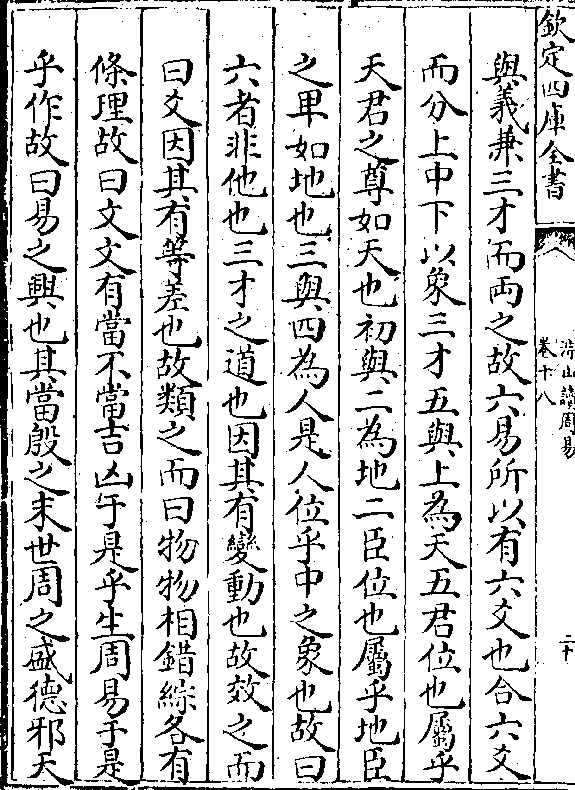 欽定四庫全書
淙山讀周易
卷十八
二十
與義兼三才而両之故六易所以有六爻也合六爻
而分上中下以象三才五與上為天五君位也屬乎
天君之尊如天也初與二為地二臣位也屬乎地臣
之卑如地也三與四為人是人位乎中之象也故曰
六者非他也三才之道也因其有變動也故效之而
曰爻因其有等差也故類之而曰物物相錯綜各有
條理故曰文文有當不當吉凶于是乎生周易于是
乎作故曰易之興也其當殷之末世周之盛德邪天